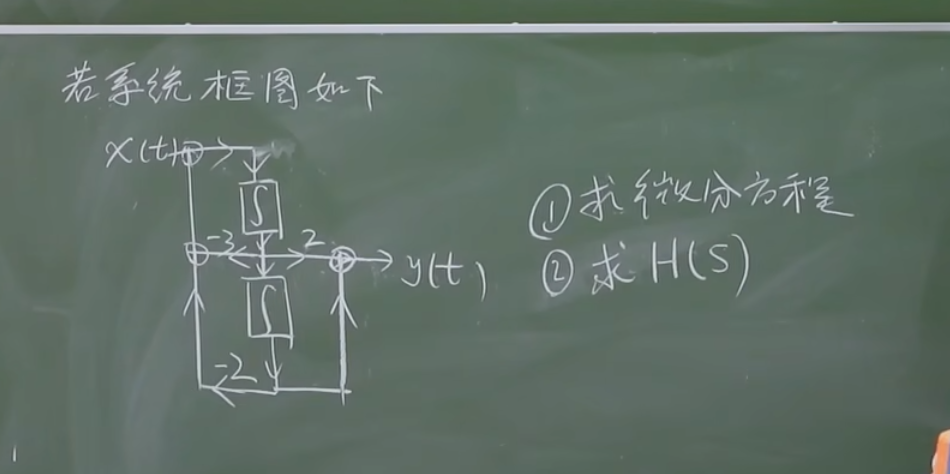 若系统框图如下
x(t)
∫
-3 2
y(t)
∫
-2
①求微分方程
②求H(S)